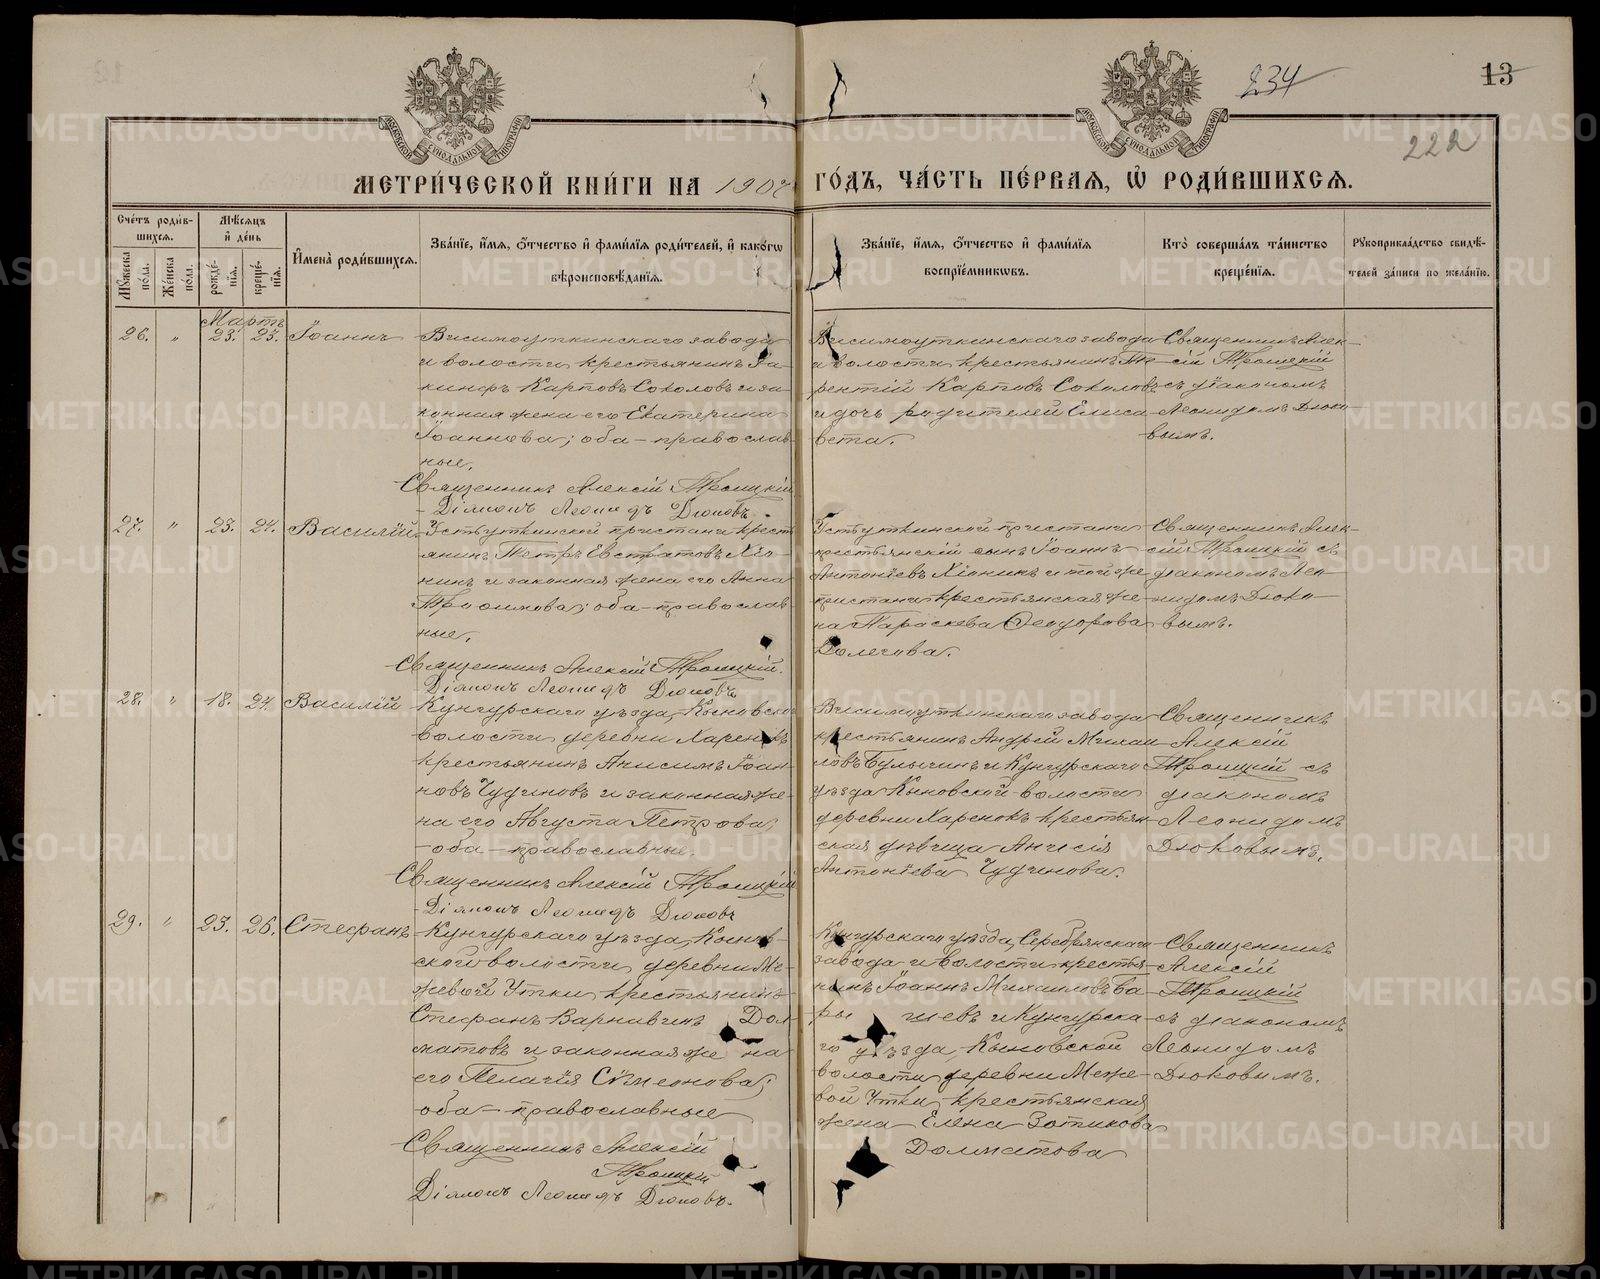 234
13
222
МОСКОВСКОЙ СѴНОДАЛЬНОЙ ТИПОГРАФІИ
МОСКОВСКОЙ СѴНОДАЛЬНОЙ ТИПОГРАФІИ
МЕТРИ́ЧЕСКОЙ КНИ́ГИ НА 1907
ГО́ДЪ, ЧА́СТЬ ПЕ́РВАЯ, Ѡ҆ РОДИ́ВШИХСЯ.
Сче́тъ роди́в-
шихся.
Мꙋжеска по́ла.
Же́нска по́ла.
Мѣ́сяцъ
и҆ де́нь
рожде́-
нїя.
креще́-
нїя.
И҆мена̀ роди́вшихся.
Зва́нїе, и҆́мя, о҆́тчество и҆ фами́лїя роди́телей, и҆ како́гѡ
вѣроисповѣ́данїя.
Зва́нїе, и҆́мя, о҆́тчество и҆ фами́лїя
воспрїе́мникѡвъ.
Кто̀ соверша́лъ та́инство
креще́нїя.
Рꙋкоприкла́дство свидѣ́-
телей за́писи по жела́нїю.
Мартъ
26. " 23. 25. Іоаннъ
Висимоуткинскаго завода
и волости крестьянинъ Іа-
кинфъ Карповъ Соколовъ и за-
конная жена его Екатерина
Іоаннова; оба - православ-
ные.
Священникъ Алексій Троицкій
Діаконъ Леонидъ Дюковъ.
Висимоуткинскаго завода
и волости крестьянинъ Те-
рентій Карповъ Соколовъ
и дочь родителей Елиса-
вета.
Священникъ Алек-
сій Троицкій
съ діакономъ
Леонидомъ Дюко-
вымъ.
27. " 23. 24. Василій
Устьуткинской пристани крест-
янинъ Петръ Евстратовъ Хіо-
нинъ и законная жена его Анна
Трофимова; оба - православ-
ные.
Священникъ Алексій Троицкій.
Діаконъ Леонидъ Дюковъ
Устьуткинской пристани
крестьянскій сынъ Іоаннъ
Антоніевъ Хіонинъ и той же
пристани крестьянская же-
на Параскева Ѳеодорова
Долегова.
Священникъ Алек-
сій Троицкій съ
діакономъ Лео-
нидомъ Дюко-
вымъ.
28. " 18. 24. Василій
Кунгурскаго уѣзда, Кыновской
волости деревни Харенокъ
крестьянинъ Анисимъ Іоан-
новъ Чудиновъ и законная же-
на его Августа Петрова;
оба - православные.
Священникъ Алексій Троицкій
Діаконъ Леонидъ Дюковъ
Висимоуткинскаго завода
крестьянинъ Андрей Михаи-
ловъ Булычинъ и Кунгурскаго
уѣзда Кыновской волости
деревни Харенокъ крестьян-
ская дѣвица Анисія
Антоніева Чудинова.
Священникъ
Алексій
Троицкій съ
діакономъ
Леонидомъ
Дюковымъ.
29. " 23. 26. Стефанъ
Кунгурскаго уѣзда, Кынов-
ской волости, деревни Ме-
жевой Утки, крестьянинъ
Стефанъ Варнавинъ Дол-
матовъ и законная жена
его Пелагія Сѵмеонова;
оба - православные
Священникъ Алексій
Троицкій
Діаконъ Леонидъ Дюковъ.
Кунгурскаго уѣзда, Серебрянскаго
завода и волости крестья-
нинъ Іоаннъ Михаиловъ Ба-
ры шевъ и Кунгурска-
го уѣзда, Кыновской
волости, деревни Меже-
вой Утки, крестьянская
жена Елена Зотикова
Долматова
Священникъ
Алексій
Троицкій
съ діакономъ
Леонидомъ
Дюковымъ.